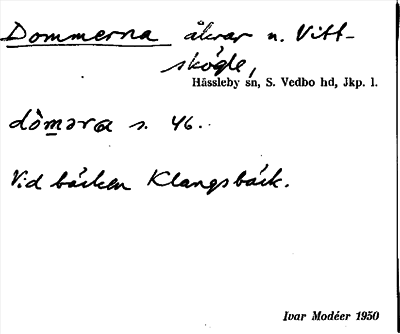 Dommerna åkrar n. Vitt-
skögle,
Hässleby sn, S. Vedbo hd, Jkp. l.
dòməra s. 46.
Vid bäcken Klangsbäck.
Ivar Modéer 1950